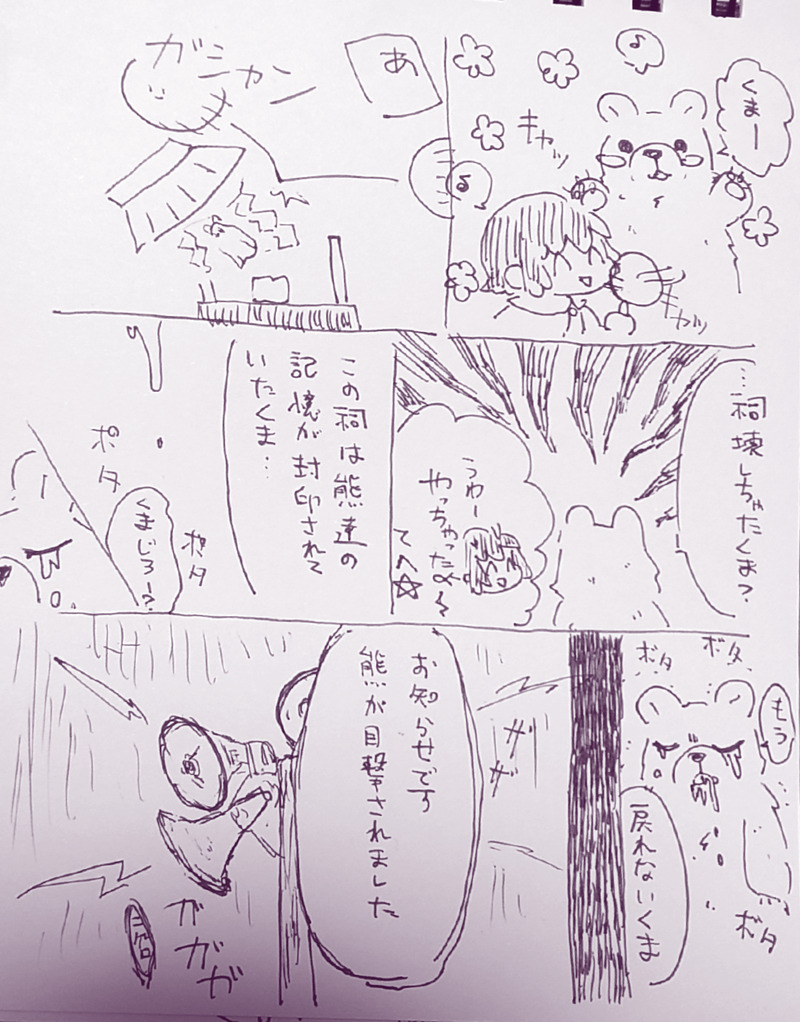 くまー
キャッ
キャッ
あ
ガシャン
…祠壊しちゃたくま?
うわー
やっちゃっため〜
てへ☆
この祠は熊達の
記憶が封印されて
いたくま…
ポタ
ポタ
くまじろー?
もう
戻れないくま
ボタ
ボタ
ボタ
お知らせです
熊が目撃されました
ザザ
ガガガ